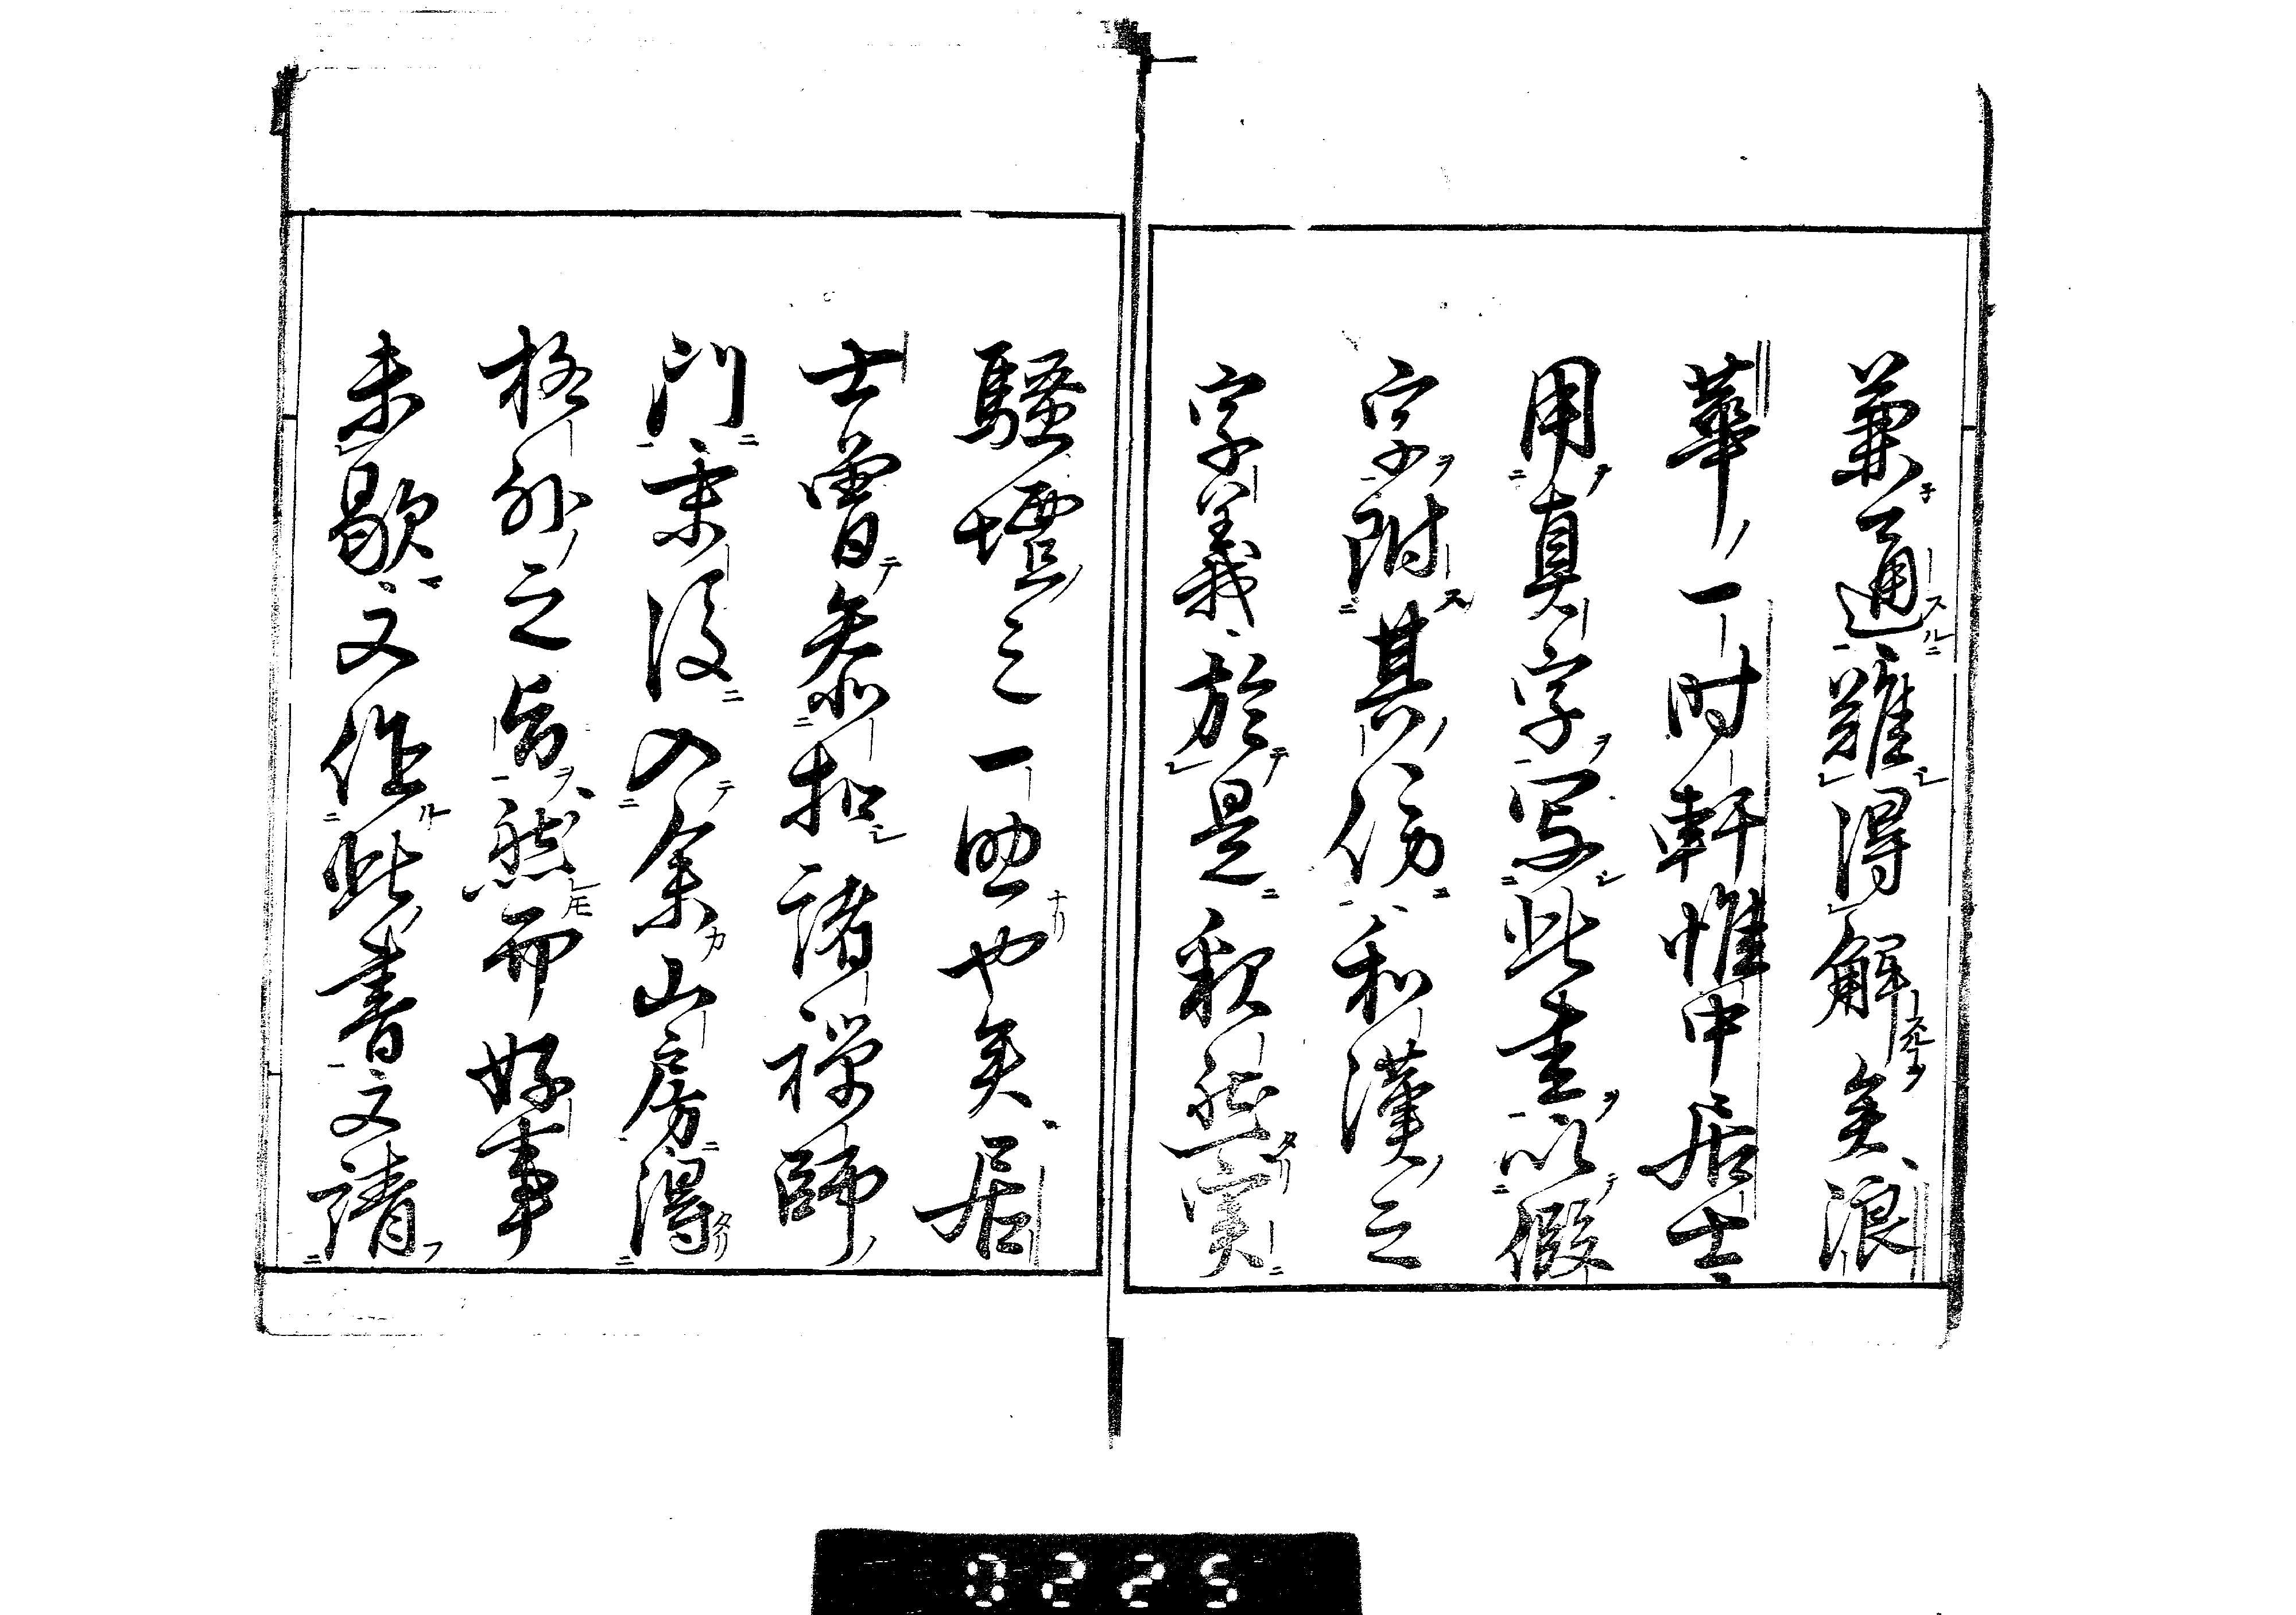 兼通難得解矣浪
華一時軒惟中居士
用真字写此書以假
字附其傍和漢之
字義於是釈然実
騒壇之一助也矣居
士曽参扣諸禅師
門末後入余山房得
格外之旨然而好事
未歇又作此書又請
0225